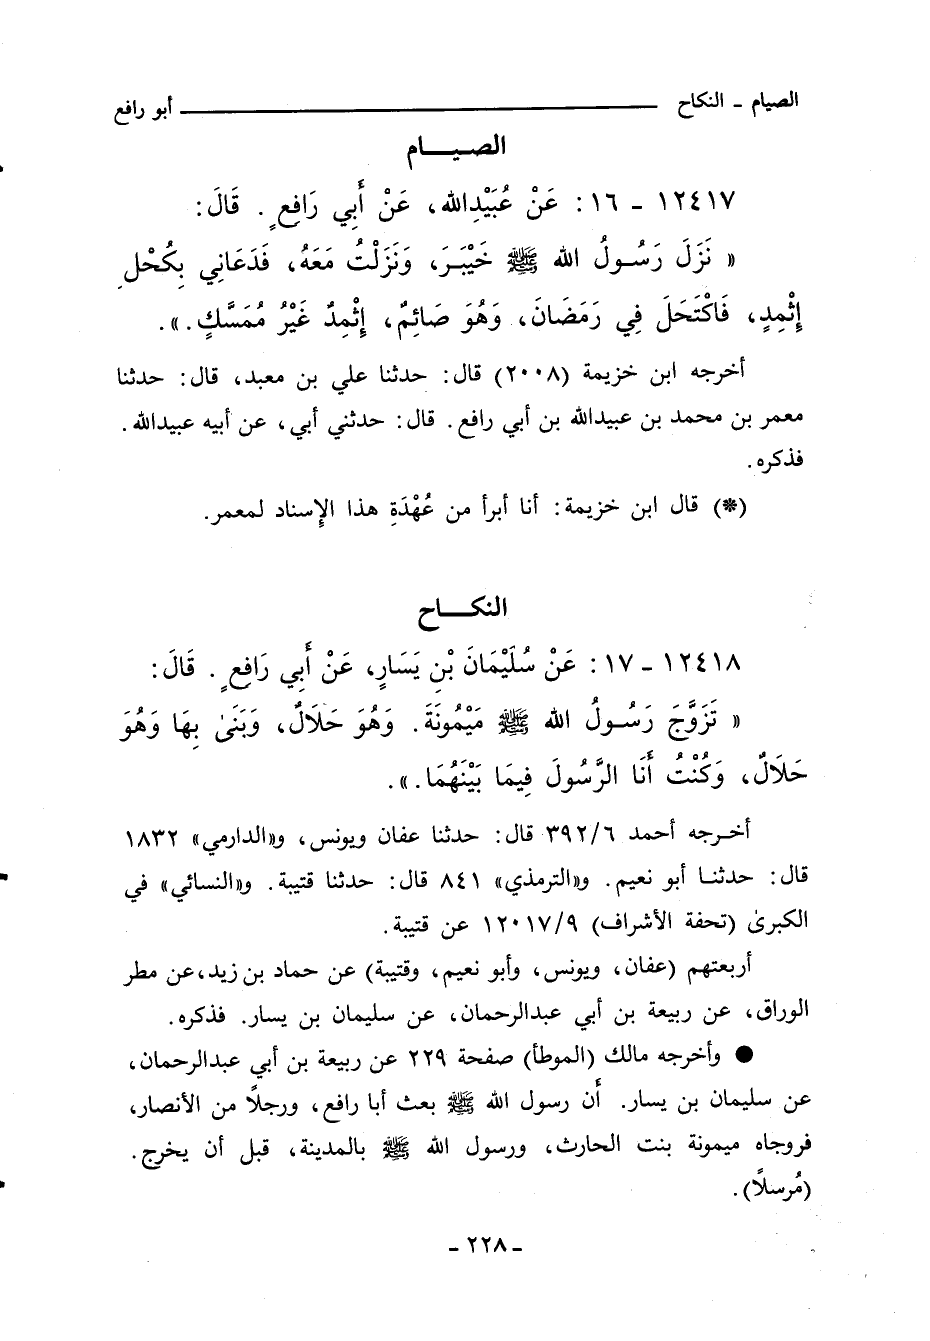 الصيام - النكاح أبو رافع
الصيـــام
١٢٤١٧ - ١٦: عَنْ عُبَيْدِالله، عَنْ أَبِي رَافِعٍ. قَالَ:
« نَزَلَ رَسُـولُ الله ﷺ خَيْبَـرَ، وَنَزَلْتُ مَعَهُ، فَدَعَانِي بِكُحْلِ
إِثْمِدٍ، فَاكْتَحَلَ فِي رَمَضَانَ، وَهُوَ صَائِمٌ، إِثْمِدٌ غَيْرُ مُمَسَّكٍ.».
أخرجه ابن خزيمة (٢٠٠٨) قال: حدثنا علي بن معبد، قال: حدثنا
معمر بن محمد بن عبيدالله بن أبي رافع. قال: حدثني أبي، عن أبيه عبيدالله.
فذكره.
(*) قال ابن خزيمة: أنا أبرأ من عُهْدَةِ هذا الإسناد لمعمر.
النكـــاح
١٢٤١٨ - ١٧: عَنْ سُلَيْمَانَ بْنِ يَسَارٍ، عَنْ أَبِي رَافِعٍ. قَالَ:
« تَزَوَّجَ رَسُـولُ الله ﷺ مَيْمُونَةَ. وَهُوَ حَلَالٌ، وَبَنَىٰ بِهَا وَهُوَ
حَلَالٌ، وَكُنْتُ أَنَا الرَّسُولَ فِيمَا بَيْنَهُمَا.».
أخـرجه أحمد ٣٩٢/٦ قال: حدثنا عفان ويونس، و«الدارمي» ١٨٣٢
قال: حدثنـا أبو نعيم. و«الترمذي» ٨٤١ قال: حدثنا قتيبة. و«النسائي» في
الكبرىٰ (تحفة الأشراف) ١٢٠١٧/٩ عن قتيبة.
أربعتهم (عفان، ويونس، وأبو نعيم، وقتيبة) عن حماد بن زيد، عن مطر
الوراق، عن ربيعة بن أبي عبدالرحمان، عن سليمان بن يسار. فذكره.
● وأخرجه مالك (الموطأ) صفحة ٢٢٩ عن ربيعة بن أبي عبدالرحمان،
عن سليمان بن يسار. أن رسول الله ﷺ بعث أبا رافع، ورجلاً من الأنصار،
فزوجاه ميمونة بنت الحارث، ورسول الله ﷺ بالمدينة، قبل أن يخرج.
(مُرسلاً).
- ٢٢٨ -